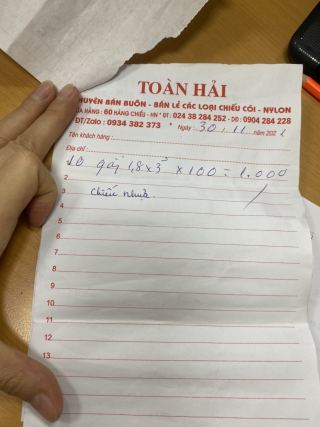 TOÀN HẢI
CHUYÊN BÁN BUÔN - BÁN LẺ CÁC LOẠI CHIẾU CÓI - NYLON
HÀNG : 60 HÀNG CHIẾU - HN * ĐT : 024 38 284 252 - DĐ : 0904 284 228
ĐT/Zalo : 0934 382 373 * Ngày : 30 . 11 năm 2021
Tên khách hàng :
Địa chỉ :
10 gấj 1,8 x 3 x 100 = 1.000
2
3 chiếu nhựa.
4
5
6
7
8
9
10
11
12
13